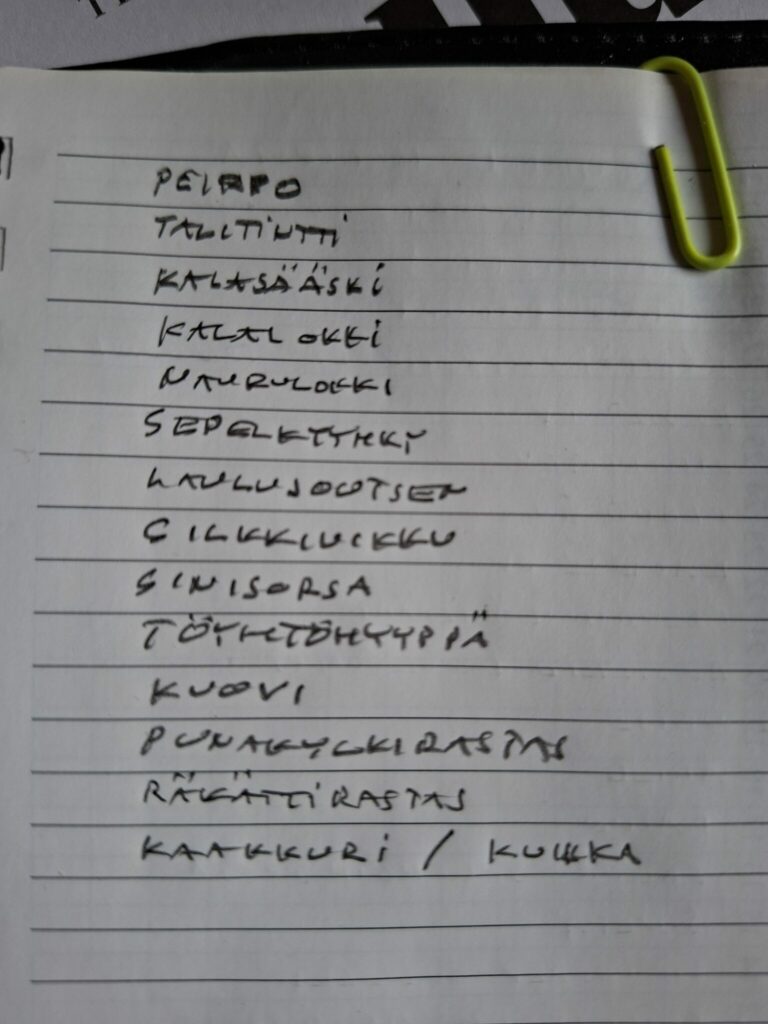 PEIPPO
TALITINTTI
KALASÄÄSKI
KALALOKKI
NAURULOKKI
SEPELKYYHKY
LAULUJOUTSEN
SILKKIUIKKU
SINISORSA
TÖYHTÖHYYPPÄ
KUOVI
PUNAKYLKIRASTAS
RÄKÄTTIRASTAS
KAAKKURI / KUIKKA